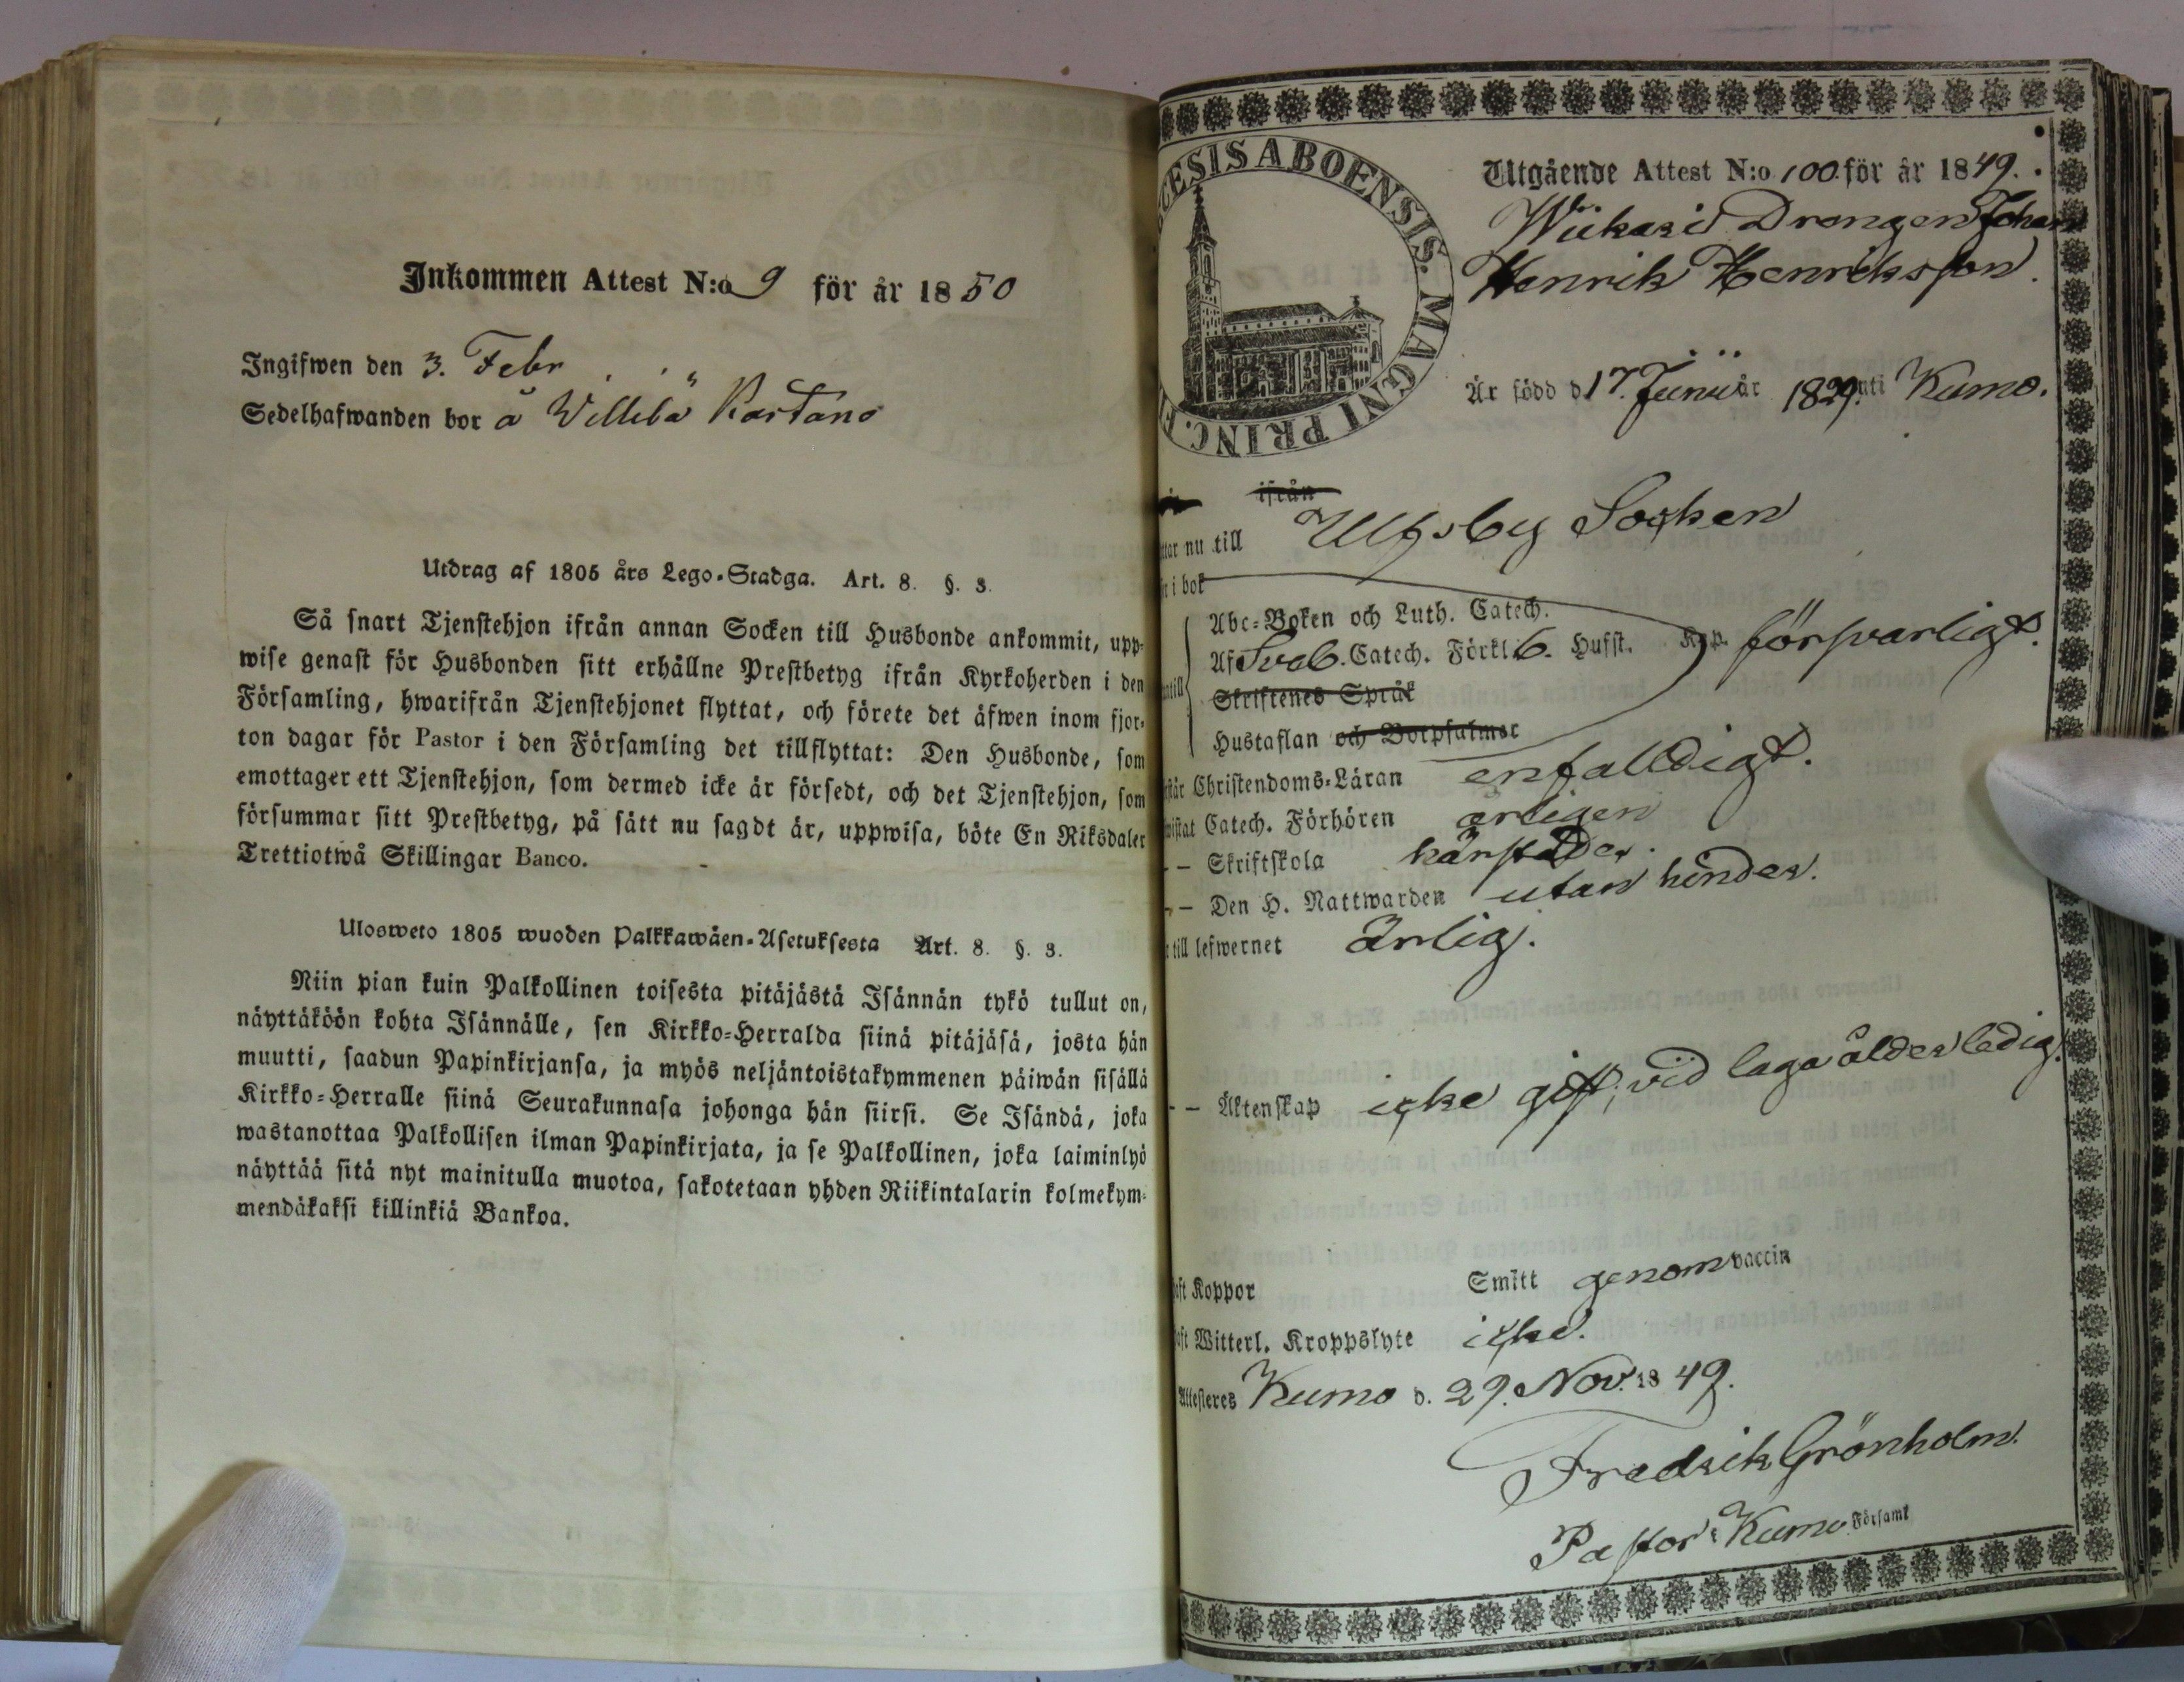 Inkommen Attest N:o 9 för år 1850
Ingifwen den 3. Febr
Sedelhafwanden bor å Villilä Kartano
Utdrag af 1805 års Lego-Stadga. Art. 8. §. 3.
Så snart Tjenstehjon ifrån annan Socken till Husbonde ankommit, upp-
wise genast för Husbonden sitt erhållne Prestbetyg ifrån Kyrkoherden i den
Församling, hwarifrån Tjenstehjonet flyttat, och förete det äfwen inom fjor-
ton dagar för Pastor i den Församling det tillflyttat: Den Husbonde, som
emottager ett Tjenstehjon, som dermed icke är försedt, och det Tjenstehjon, som
försummar sitt Prestbetyg, på sätt nu sagdt är, uppwisa, böte En Riksdaler
Trettiotwå Skillingar Banco.
Ulosweto 1805 wuoden Palkkawäen-Asetuksesta Art. 8. §. 3.
Niin pian kuin Palkollinen toisesta pitäjästä Isännän tykö tullut on,
näyttäköön kohta Isännälle, sen Kirkko-Herralda siinä pitäjäsä, josta hän
muutti, saadun Papinkirjansa, ja myös neljäntoistakymmenen päiwän sisällä
Kirkko-Herralle siinä Seurakunnasa johonga hän siirsi. Se Isändä, joka
wastanottaa Palkollisen ilman Papinkirjata, ja se Palkollinen, joka laiminlyö
näyttää sitä nyt mainitulla muotoa, sakotetaan yhden Riikintalarin kolmekym-
mendäkaksi killinkiä Bankoa.
ECESIS ABOENSIS. MAGNI PRINC. F
Utgående Attest N:o 100 för år 1849.
Drengen Johan
Henrik Henriksson.
Är född d 17. Junii år 1829. uti Kumo.
ifrån
ttar nu till Ulfsby Socken
r i bok
Abc-Boken och Luth. Catech.
Af Sveb. Catech. Förkl. 6. Husst. Kap. försvarligt.
Skriftenes Språk
Hustaflan och Botpsalmer
står Christendoms-Läran enfalldigt.
wistat Catech. Förhören årligen
– – Skriftskola härstädes.
– – Den H. Nattwarden utan hinder.
till lefwernet Ärlig.
– – Äktenskap icke gift, vid laga ålder ledig.
aft Koppor Smitt genom vaccin
aft Witterl. Kroppslyte icke.
Attesteras Kumo d. 29. Nov. 1849.
Fredrik Grönholm.
Pastor i Kumo Församl